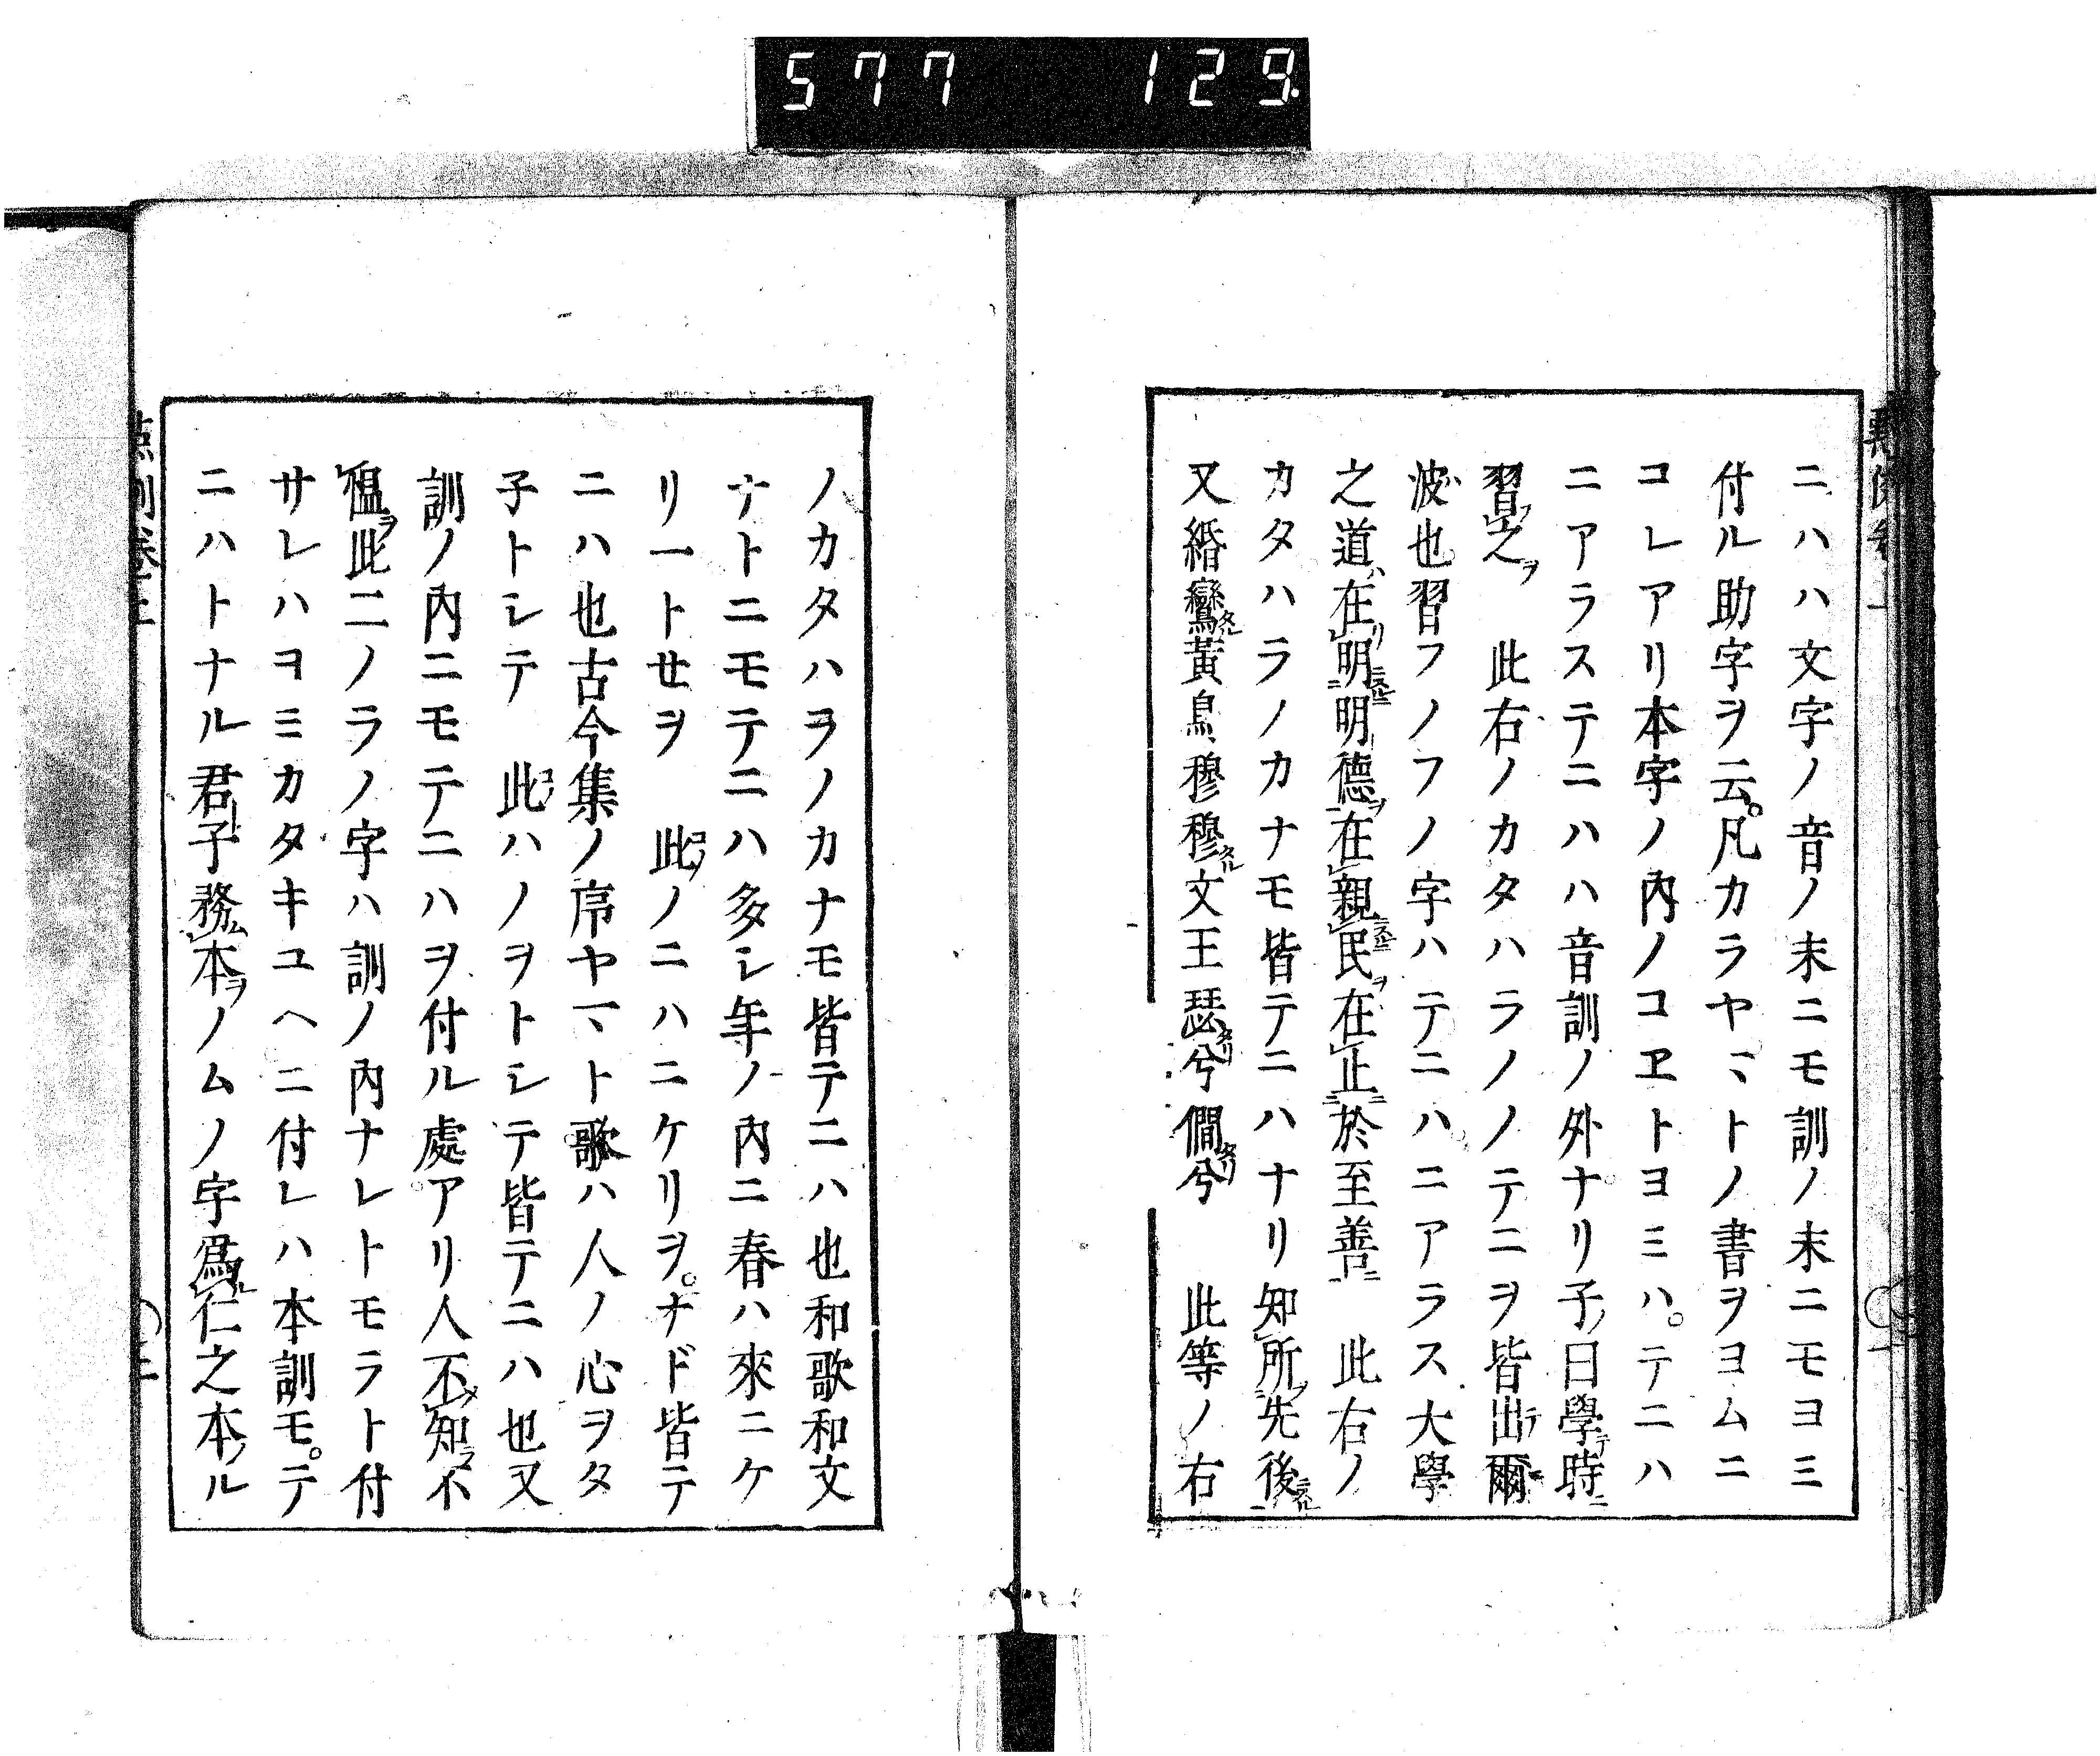 577 129.
ニハハ文字ノ音ノ末ニモ訓ノ末ニモヨミ
付ル助字ヲ云。凡カラヤマトノ書ヲヨムニ
コレアリ本字ノ内ノコヱトヨミハ。テニハ
ニアラステニハハ音訓ノ外ナリ子ノ曰學テ時ニ
習フ之ヲ 此右ノカタハラノノテニヲ皆出テ爾
波也習フノフノ字ハテニハニアラス大學
之道ハ在リ明ニスルニ明德ヲ在親ニスルニ民ヲ在止ニ於至善ニ 此右ノ
カタハラノカナモ皆テニハナリ知所ヲ先後ニスル
又緡蠻タル黃鳥、穆穆タル文王瑟タリ兮僩タリ兮 此等ノ右
ノカタハヲノカナモ皆テニハ也和歌和文
ナトニモテニハ多シ年ノ内ニ春ハ來ニケ
リ一トせヲ 此コノノニハニケリヲ。ナド皆テ
ニハ也古今集ノ序ヤマト歌ハ人ノ心ヲタ
子トシテ 此コノハノヲトシテ皆テニハ也又
訓ノ內ニモテニハヲ付ル處アリ人不メ知ラ不
慍ラ此二ノラノ字ハ訓ノ內ナレトモラト付
サレハヨミカタキユヘニ付レハ本訓モ。テ
ニハトナル君子務ム本ヲノムノ字爲ル仁之本ノル